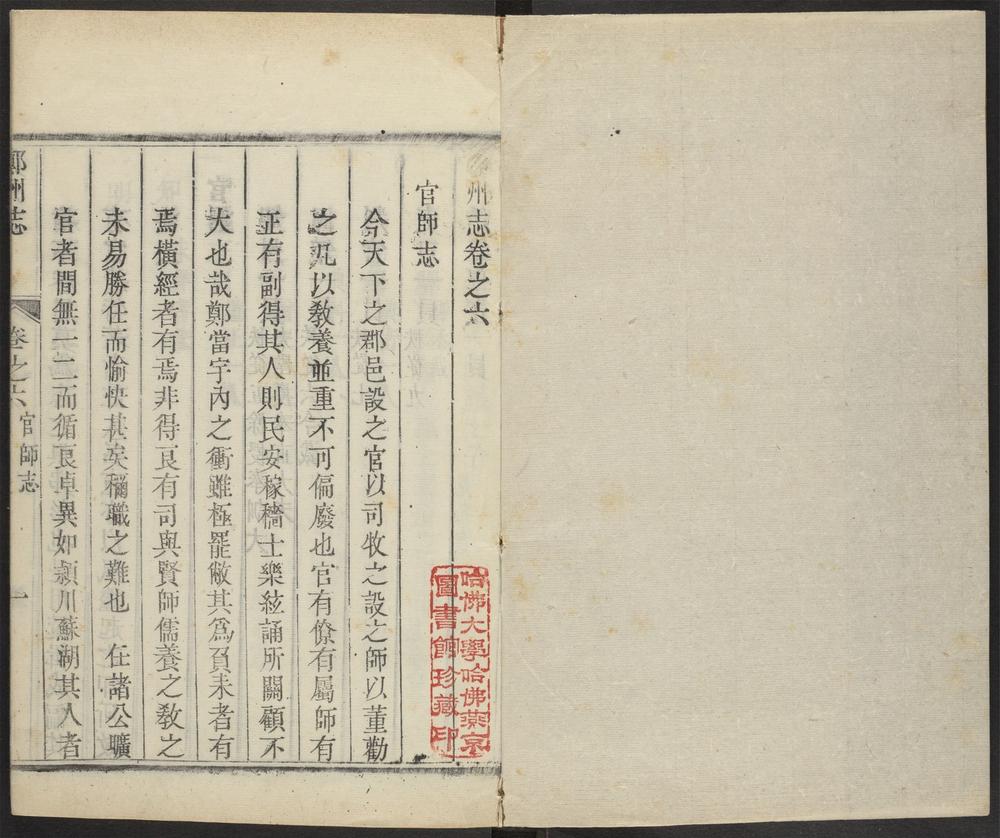 州志卷之六
官師志
今天下之郡邑設之官以司牧之設之師以董勸
之凡以教養並重不可偏廢也官有僚有屬師有
正有副得其人則民安稼穡士樂絃誦所關顧不
大也哉鄭當宇內之衝雖極罷敝其為負耒者有
焉橫經者有焉非得良有司與賢師儒養之教之
未易勝任而愉快甚矣稱職之難也 在諸公曠
官者間無一二而循良卓異如潁川蘇湖其人者
鄭州志
卷之六
官師志
一
哈佛大學哈佛燕京
圖書館珍藏印